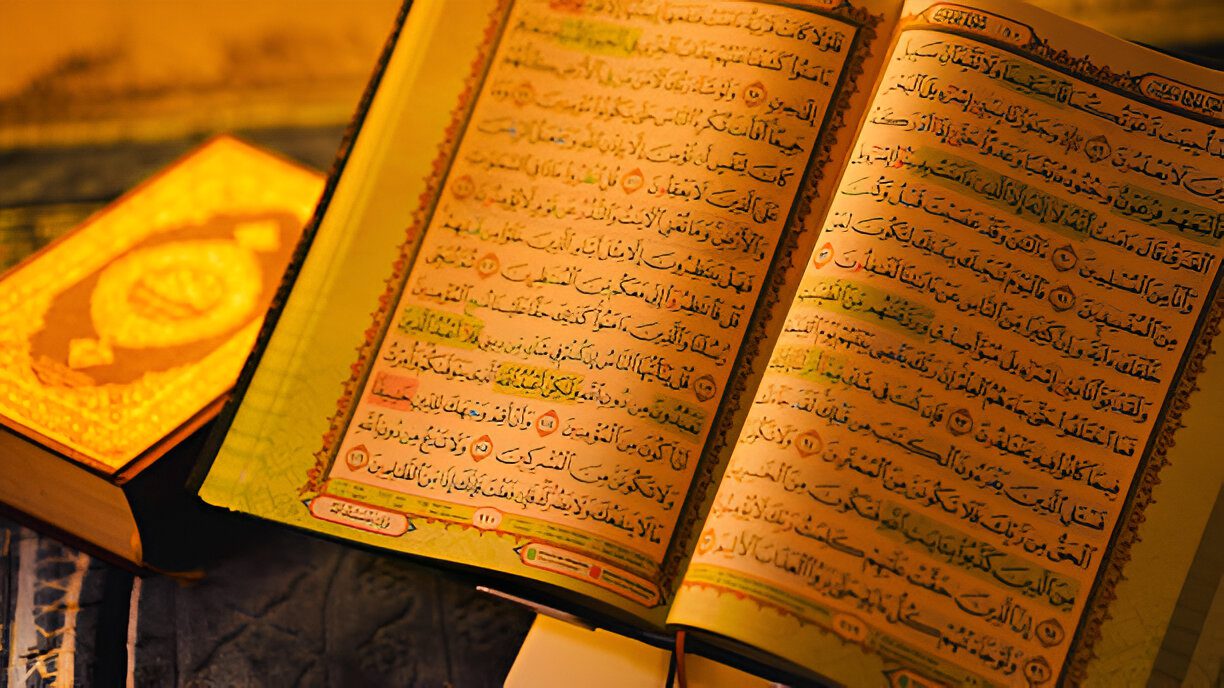 أُجِيبَت دَّعْوَتُكُمَا فَٱسْتَقِيمَا وَلَا تَتَّبِعَآنِّ سَبِيلَ
لَا يَعْلَمُونَ ٨٩ ۞ وَجَٰوَزْنَا بِبَنِىٓ إِسْرَٰٓءِيلَ ٱلْبَحْرَ
فَأَتْبَعَهُمْ فِرْعَوْنُ وَجُنُودُهُۥ بَغْيًا وَعَدْوًا حَتَّىٰٓ إِذَآ أَدْرَكَهُ
ٱلْغَرَقُ قَالَ ءَامَنتُ أَنَّهُۥ لَآ إِلَٰهَ إِلَّا ٱلَّذِىٓ ءَامَنَتْ بِهِۦ بَنُوٓا۟ إِسْرَٰٓءِيلَ
وَأَنَا۠ مِنَ ٱلْمُسْلِمِينَ ٩٠ ءَآلْـَٰٔنَ وَقَدْ عَصَيْتَ قَبْلُ وَكُنتَ
مِنَ ٱلْمُفْسِدِينَ ٩١ فَٱلْيَوْمَ نُنَجِّيكَ بِبَدَنِكَ لِتَكُونَ لِمَنْ
خَلْفَكَ ءَايَةً وَإِنَّ كَثِيرًا مِّنَ ٱلنَّاسِ عَنْ ءَايَٰتِنَا لَغَٰفِلُونَ ٩٢
وَلَقَدْ بَوَّأْنَا بَنِىٓ إِسْرَٰٓءِيلَ مُبَوَّأَ صِدْقٍ وَرَزَقْنَٰهُم مِّنَ ٱلطَّيِّبَٰتِ
فَمَا ٱخْتَلَفُوا۟ حَتَّىٰ جَآءَهُمُ ٱلْعِلْمُ إِنَّ رَبَّكَ يَقْضِى بَيْنَهُمْ يَوْمَ ٱلْقِيَٰمَةِ
فِيمَا كَانُوا۟ فِيهِ يَخْتَلِفُونَ ٩٣ فَإِن كُنتَ فِى شَكٍّ مِّمَّآ أَنزَلْنَآ إِلَيْكَ
فَسْـَٔلِ ٱلَّذِينَ يَقْرَءُونَ ٱلْكِتَٰبَ مِن قَبْلِكَ لَقَدْ جَآءَكَ
ٱلْحَقُّ مِن رَّبِّكَ فَلَا تَكُونَنَّ مِنَ ٱلْمُمْتَرِينَ ٩٤ وَلَا تَكُونَنَّ
مِنَ ٱلَّذِينَ كَذَّبُوا۟ بِـَٔايَٰتِ ٱللَّهِ فَتَكُونَ مِنَ ٱلْخَٰسِرِينَ ٩٥
إِنَّ ٱلَّذِينَ حَقَّتْ عَلَيْهِمْ كَلِمَتُ رَبِّكَ لَا يُؤْمِنُونَ ٩٦
وَلَوْ جَآءَتْهُمْ كُلُّ ءَايَةٍ حَتَّىٰ يَرَوُا۟ ٱلْعَذَابَ ٱلْأَلِيمَ ٩٧
٢١٩
فَلَوْلَا كَانَتْ قَرْيَةٌ ءَامَنَتْ فَنَفَعَهَآ
ءَامَنُوا۟ كَشَفْنَا عَنْهُمْ عَذَابَ ٱلْخِزْىِ
إِلَىٰ حِينٍ ٩٨ وَلَوْ شَآءَ رَبُّكَ لَءَامَنَ مَن فِى ٱلْأَرْضِ كُلُّهُمْ
جَمِيعًا أَفَأَنتَ تُكْرِهُ ٱلنَّاسَ حَتَّىٰ يَكُونُوا۟ مُؤْمِنِينَ ٩٩ وَمَا
كَانَ لِنَفْسٍ أَن تُؤْمِنَ إِلَّا بِإِذْنِ ٱللَّهِ وَيَجْعَلُ ٱلرِّجْسَ
عَلَى ٱلَّذِينَ لَا يَعْقِلُونَ ١٠٠ قُلِ ٱنظُرُوا۟ مَاذَا فِى ٱلسَّمَٰوَٰتِ
وَٱلْأَرْضِ وَمَا تُغْنِى ٱلْـَٔايَٰتُ وَٱلنُّذُرُ عَن قَوْمٍ لَّا يُؤْمِنُونَ ١٠١
فَهَلْ يَنتَظِرُونَ إِلَّا مِثْلَ أَيَّامِ ٱلَّذِينَ خَلَوْا۟ مِن قَبْلِهِمْ
قُلْ فَٱنتَظِرُوٓا۟ إِنِّى مَعَكُم مِّنَ ٱلْمُنتَظِرِينَ ١٠٢ ثُمَّ نُنَجِّى
رُسُلَنَا وَٱلَّذِينَ ءَامَنُوا۟ كَذَٰلِكَ حَقًّا عَلَيْنَا نُنجِ ٱلْمُؤْمِنِينَ
١٠٣ قُلْ يَٰٓأَيُّهَا ٱلنَّاسُ إِن كُنتُمْ فِى شَكٍّ مِّن دِينِى فَلَآ أَعْبُدُ ٱلَّذِينَ
تَعْبُدُونَ مِن دُونِ ٱللَّهِ وَلَٰكِنْ أَعْبُدُ ٱللَّهَ ٱلَّذِى يَتَوَفَّىٰكُمْ وَأُمِرْتُ
أَنْ أَكُونَ مِنَ ٱلْمُؤْمِنِينَ ١٠٤ وَأَنْ أَقِمْ وَجْهَكَ لِلدِّينِ حَنِيفًا
وَلَا تَكُونَنَّ مِنَ ٱلْمُشْرِكِينَ ١٠٥ وَلَا تَدْعُ مِن دُونِ ٱللَّهِ
مَا لَا يَنفَعُكَ وَلَا يَضُرُّكَ فَإِن فَعَلْتَ فَإِنَّكَ إِذًا مِّنَ ٱلظَّٰلِمِينَ ١٠٦